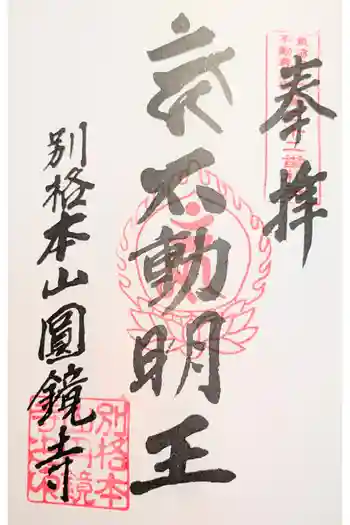 奉拝
不動明王
別格本山圓鏡寺
別格本
山円鏡